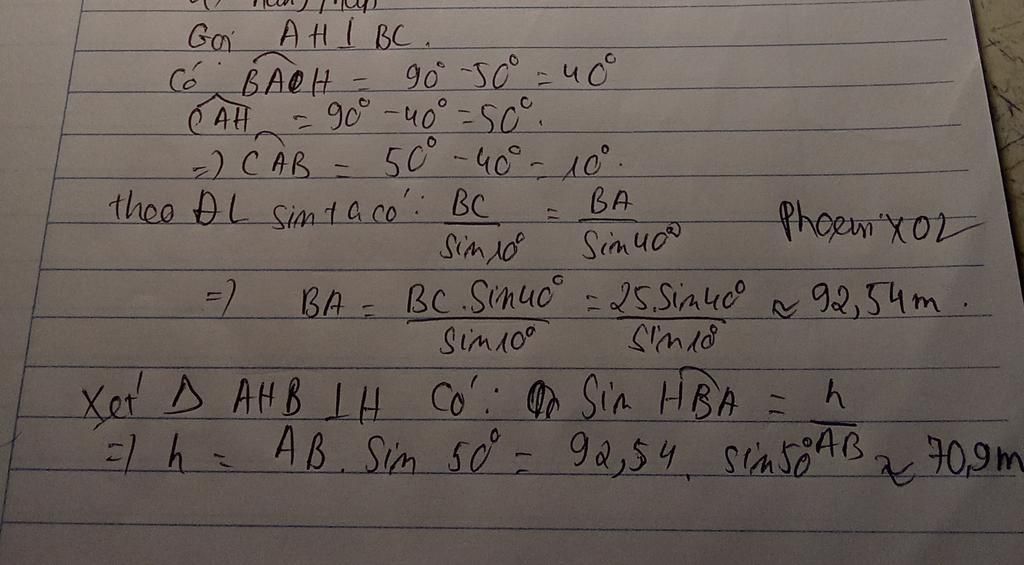 Gọi AH ⊥ BC.
Có BAH = 90° - 50° = 40°
CAH = 90° - 40° = 50°.
=) CAB = 50° - 40° = 10°.
theo ĐL sin ta có: BC/Sin10° = BA/Sin40° Phoenix02
=) BA = BC.Sin40°/Sin10° = 25.Sin40°/Sin10° ≈ 92,54m.
Xét Δ AHB ⊥ H Có: Sin HBA = h/AB
=) h = AB. Sin 50° = 92,54. sin50° ≈ 70,9m